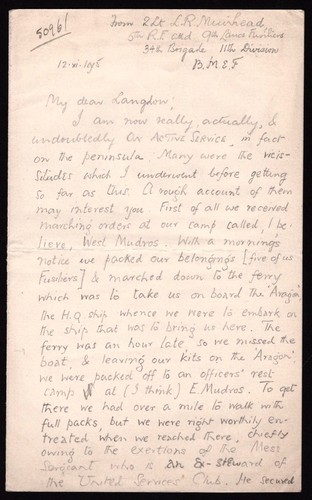 50961
From 2Lt L.R. Muirhead
5th R.F. attd 9th Lancs Fusiliers
34th Brigade 11th Division
B.M.E.F
My dear Langdon,
I am now really, actually, &
undoubtedly ON ACTIVE SERVICE, in fact
on the peninsula. Many were the vicis-
situdes which I underwent before getting
so far as this. A rough account of them
may interest you. First of all we received
marching orders at our camp called, I be-
lieve, West Mudros. With a morning's
notice we packed our belongings [five of us
Fusiliers] & marched down to the ferry
which was to take us on board the 'Aragon',
the H.Q. ship whence we were to embark on
the ship that was to bring us here. The
ferry was an hour late, so we missed the
boat, & leaving our kits on the 'Aragon'
we were packed off to an officers' rest
camp at (I think) E. Mudros. To get
there we had over a mile to walk with
full packs, but we were right worthily en-
treated when we reached there, chiefly
owing to the exertions of the Mess
Sergeant who is an ex-steward of
the 'United Services' Club. He secured